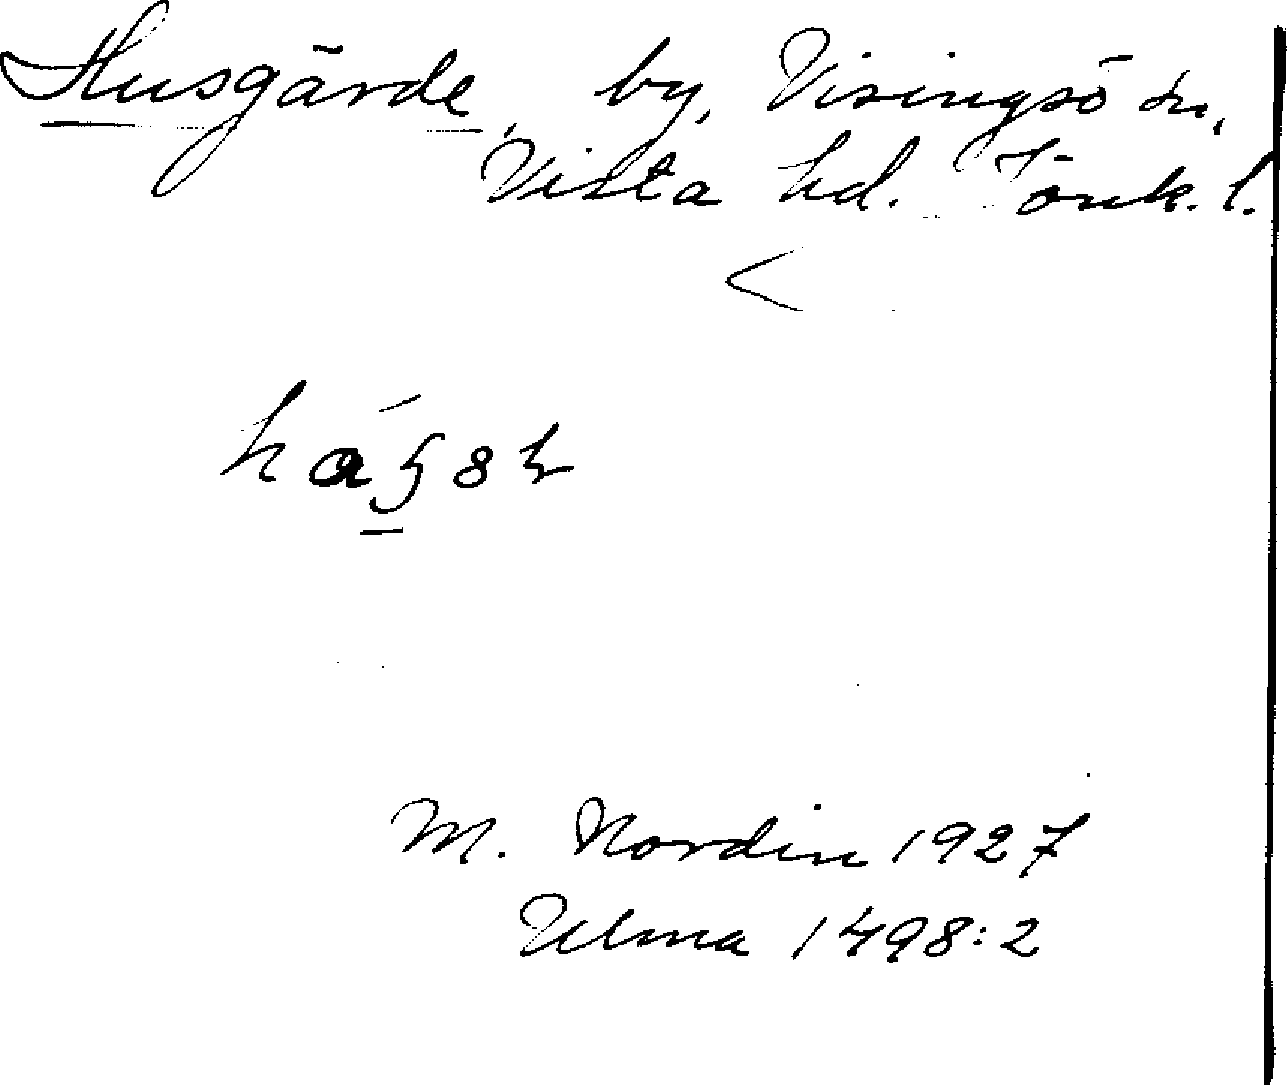 Husgärde, by, Visingsö sn,
Vista hd. Jönk. l.
<
M. Nordin 1927
Ulma 1498:2